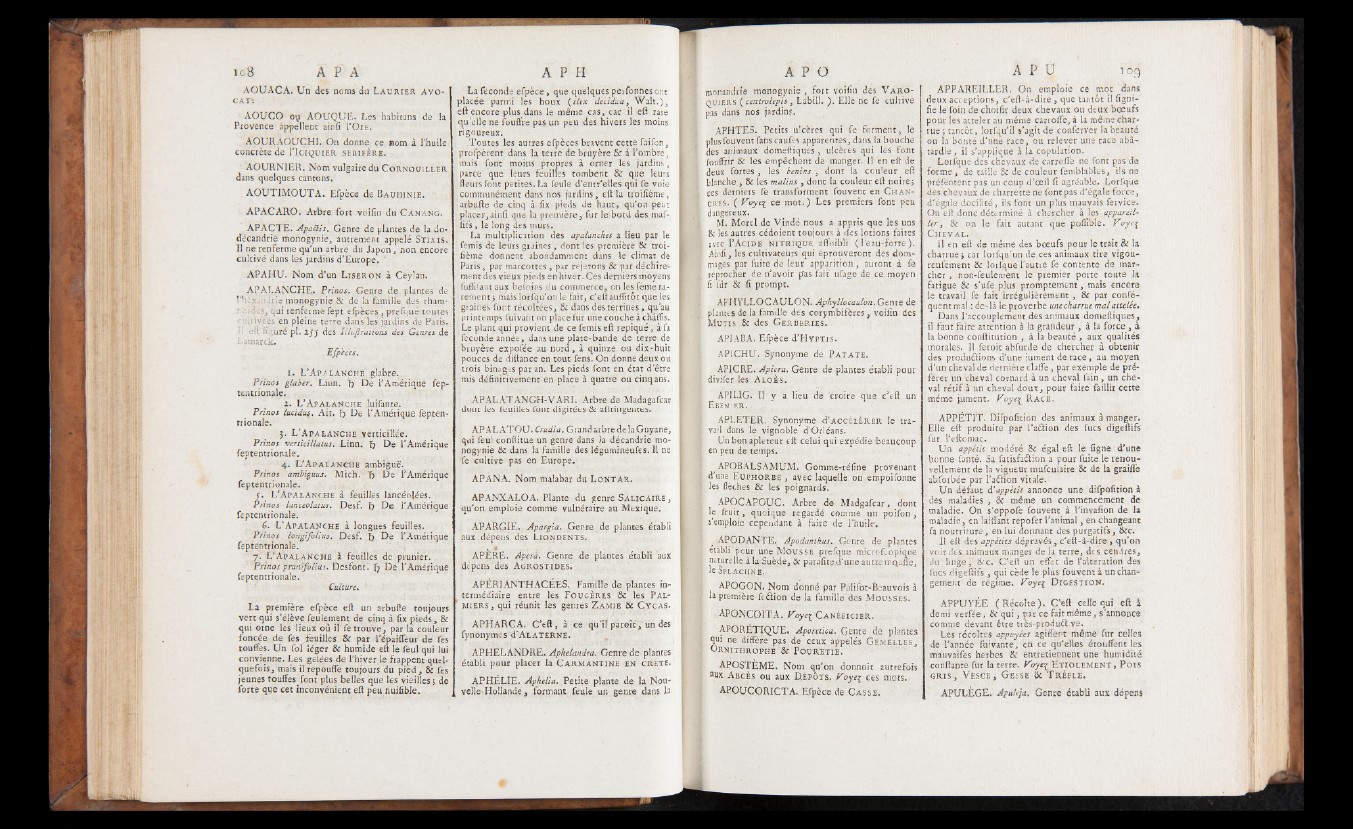 108 A P A
AOUACA. Un des noms du LAURIER AVO-
CAT.
AOUCO ou AOUQUE. Les habitans de la
Provence appellent ainsi l'OIE.
AOURAOUCHI. On donne ce nom à l'huile
concrète de l'ICIQUIER SEBIFÈRE.
AOURNIER. Nom vulgaire du CORNOUILLER
dans quelques cantons.
AOUTIMOUTA. Eſpèce de BAUHINIE.
APACARO. Arbre fort voiſin du CANANG.
APACTE. Apactis. Genre de plantes de la do-
décandrie monogynie, autrement appelé STIXIS.
Il ne renferme qu'un arbre du Japon, non encore
cultivé dans les jardins d'Europe.
APAHU. Nom d'un LISERON à Ceylan.
APALANCHE. Prinos. Genre de plantes de
l'hexandrie monogynie & de la famille des rham-
noïdes, qui renferme ſept eſpèces, preſque toutes
cultivées en pleine terre dans les jardins de Paris.
Il eſt figuré pl. 255 des Illuſtrations des Genres de
Lamarck.
Eſpèces.
1. L'APALANCHE glabre.
Prinos glaber. Linn. ♄ De l'Amérique ſep-
tentrionale.
2. L'APALANCHE luiſante.
Prinos lucidus. Ait. ♄ De l'Amérique ſepten-
trionale.
3. L'APALANCHE verticillée.
Prinos verticillatus. Linn. ♄ De l'Amérique
ſeptentrionale.
4. L'APALANCHE ambiguë.
Prinos ambiguus. Mich. ♄ De l'Amérique
ſeptentrionale.
5. L'APALANCHE à feuilles lancéolées.
Prinos lanceolatus. Desf. ♄ De l'Amérique
ſeptentrionale.
6. L'APALANCHE à longues feuilles.
Prinos longifolius. Desf. ♄ De l'Amérique
ſeptentrionale.
7. L'APALANCHE à feuilles de prunier.
Prinos prunifolius. Desfont. ♄ De l'Amérique
ſeptentrionale.
Culture.
La première eſpèce eſt un arbuſte toujours
vert qui s'élève ſeulement de cinq à ſix pieds, &
qui orne les lieux où il ſe trouve, par la couleur
foncée de ſes feuilles & par l'épaiſſeur de ſes
touffes. Un ſol léger & humide eſt le ſeul qui lui
convienne. Les gelées de l'hiver le frappent quel-
quefois, mais il repouſſe toujours du pied, & ſes
jeunes touffes ſont plus belles que les vieilles; de
ſorte que cet inconvénient eſt peu nuiſible.
A P H
La ſeconde eſpèce, que quelques perſonnes ont
placée parmi les houx (ilex decidua, Walt.),
eſt encore plus dans le même cas, car il eſt rare
qu'elle ne ſouffre pas un peu des hivers les moins
rigoureux.
Toutes les autres eſpèces bravent cette ſaiſon,
proſpèrent dans la terre de bruyère & à l'ombre,
mais ſont moins propres à orner les jardins,
parce que leurs feuilles tombent & que leurs
fleurs ſont petites. La ſeule d'entr'elles qui ſe voie
communément dans nos jardins, eſt la troiſième,
arbuſte de cinq à ſix pieds de haut, qu'on peut
placer, ainſi que la première, ſur le bord des maſ-
ſifs, le long des murs.
La multiplication des apalanches a lieu par le
ſemis de leurs graines, dont les première & troi-
ſième donnent abondamment dans le climat de
Paris, par marcottes, par rejetons & par déchire-
ment des vieux pieds en hiver. Ces derniers moyens
ſuffiſant aux beſoins du commerce, on les ſème ra-
rement; mais lorſqu'on le fait, c'eſt auſſitôt que les
graines ſont récoltées, & dans des terrines, qu'au
printemps ſuivant on place ſur une couche à châſſis.
Le plant qui provient de ce ſemis eſt repiqué, à ſa
ſeconde année, dans une plate-bande de terre de
bruyère expoſée au nord, à quinze ou dix-huit
pouces de diſtance en tout ſens. On donne deux ou
trois binages par an. Les pieds ſont en état d'être
mis définitivement en place à quatre ou cinq ans.
APALATANGH-VARI. Arbre de Madagaſcar
dont les feuilles ſont digitées & aſtringentes.
APALATOU. Crudia. Grand arbre de la Guyane,
qui ſeul conſtitue un genre dans la décandrie mo-
nogynie & dans la famille des légumineuſes. Il ne
ſe cultive pas en Europe.
APANA. Nom malabar du LONTAR.
APANXALOA. Plante du genre SALICAIRE,
qu'on emploie comme vulnéraire au Mexique.
APARGIE. Apargia. Genre de plantes établi
aux dépens des LIONDENTS.
APÈRE. Apera. Genre de plantes établi aux
dépens des AGROSTIDES.
APÉRIANTHACÉES. Famille de plantes in-
termédiaire entre les FOUGÈRES & les PAL-
MIERS, qui réunit les genres ZAMIE & CYCAS.
APHARCA. C'eſt, à ce qu'il paroît, un des
ſynonymes d'ALATERNE.
APHELANDRE. Aphelandra. Genre de plantes
établi pour placer la CARMANTINE EN CRETE.
APHÉLIE. Aphelia. Petite plante de la Nou-
velle-Hollande, formant ſeule un genre dans la
A P O
monandrie monogynie, fort voiſin des VARO-
QUIERS (centrolepis, Labill.). Elle ne ſe cultive
pas dans nos jardins.
APHTES. Petits ulcères qui ſe forment, le
plus ſouvent ſans cauſes apparentes, dans la bouche
des animaux domeſtiques, ulcères qui les font
ſouffrir & les empêchent de manger. Il en eſt de
deux ſortes, les benins, dont la couleur eſt
blanche, & les malins, dont la couleur eſt noire;
ces derniers ſe transforment ſouvent en CHAN-
CRES. (Voyez ce mot.) Les premiers ſont peu
dangereux.
M. Morel de Vindé nous a appris que les uns
& les autres cédoient toujours à des lotions faites
avec l'ACIDE NITRIQUE affoibli (l'eau-forte).
Ainſi, les cultivateurs qui éprouveront des dom-
mages par ſuite de leur apparition, auront à ſe
reprocher de n'avoir pas fait uſage de ce moyen
ſi sûr & ſi prompt.
APHYLLOCAULON. Aphyllocaulon. Genre de
plantes de la famille des corymbifères, voiſin des
MUTIS & des GERBERIES.
APIABA. Eſpèce d'HYPTIS.
APICHU. Synonyme de PATATE.
APICRE. Apicra. Genre de plantes établi pour
diviſer les ALOÈS.
APILIG. Il y a lieu de croire que c'eſt un
EBENIER.
APLETER. Synonyme d'ACCÉLÉRER le tra-
vail dans le vignoble d'Orléans.
Un bon apleteur eſt celui qui expédie beaucoup
en peu de temps.
APOBALSAMUM. Gomme-réſine provenant
d'une EUPHORBE, avec laquelle on empoiſonne
les flèches & les poignards.
APOCAPOUC. Arbre de Madgaſcar, dont
le fruit, quoique regardé comme un poiſon,
s'emploie cependant à faire de l'huile.
APODANTE. Apodanthus. Genre de plantes
établi pour une MOUSSE preſque microſcopique
naturelle à la Suède, & paraſite d'une autre mouſſe,
le SPLACHNE.
APOGON. Nom donné par Paliſot-Beauvois à
la première ſection de la famille des MOUSSES.
APONCOITA. Voyez CANÉFICIER.
APORÉTIQUE. Aporetica. Genre de plantes
qui ne diffère pas de ceux appelés GEMELLES,
ORNITHROPHE & POURETIE.
APOSTÈME. Nom qu'on donnoit autrefois
aux ABCÈS ou aux DÉPÔTS. Voyez ces mots.
APOUCORICTA. Eſpèce de CASSE.
A P U 109
APPAREILLER. On emploie ce mot dans
deux acceptions, c'eſt-à-dire, que tantôt il ſigni-
fie le ſoin de choiſir deux chevaux ou deux bœufs
pour les atteler au même carroſſe, à la même char-
rue; tantôt, lorſqu'il s'agit de conſerver la beauté
ou la bonté d'une race, ou relever une race abâ-
tardie, il s'applique à la copulation.
Lorſque des chevaux de carroſſe ne ſont pas de
forme, de taille & de couleur ſemblables, ils ne
préſentent pas un coup d'œil ſi agréable. Lorſque
des chevaux de charrette ne ſont pas d'égale force,
d'égale docilité, ils font un plus mauvais ſervice.
On eſt donc déterminé à chercher à les appareil-
ler, & on le fait autant que poſſible. Voyez
CHEVAL.
Il en eſt de même des bœufs pour le trait & la
charrue; car lorſqu'un de ces animaux tire vigou-
reuſement & lorſque l'autre ſe contente de mar-
cher, non-ſeulement le premier porte toute la
fatigue & s'uſe plus promptement, mais encore
le travail ſe fait irrégulièrement, & par conſé-
quent mal: de-là le proverbe une charrue mal attelée.
Dans l'accouplement des animaux domeſtiques,
il faut faire attention à la grandeur, à la force, à
la bonne conſtitution, à la beauté, aux qualités
morales. Il ſeroit abſurde de chercher à obtenir
des productions d'une jument de race, au moyen
d'un cheval de dernière claſſe, par exemple de pré-
férer un cheval cornard à un cheval ſain, un che-
val rétif à un cheval doux, pour faire ſaillir cette
même jument. Voyez RACE.
APPÉTIT. Diſpoſition des animaux à manger.
Elle eſt produite par l'action des ſucs digeſtifs
ſur l'eſtomac.
Un appétit modéré & égal eſt le ſigne d'une
bonne ſanté. Sa ſatisfaction a pour ſuite le renou-
vellement de la vigueur muſculaire & de la graiſſe
abſorbée par l'action vitale.
Un défaut d'appétit annonce une diſpoſition à
des maladies, & même un commencement de
maladie. On s'oppoſe ſouvent à l'invaſion de la
maladie, en laiſſant repoſer l'animal, en changeant
ſa nourriture, en lui donnant des purgatifs, &c.
Il eſt des appétits dépravés, c'eſt-à-dire, qu'on
voit des animaux manger de la terre, des cendres,
du linge, &c. C'eſt un effet de l'altération des
ſucs digeſtifs, qui cède le plus ſouvent à un chan-
gement de régime. Voyez DIGESTION.
APPUYÉE (Récolte). C'eſt celle qui eſt à
demi verſée, & qui, par ce fait même, s'annonce
comme devant être très-productive.
Les récoltes appuyées agiſſent même ſur celles
de l'année ſuivante, en ce qu'elles étouffent les
mauvaiſes herbes & entretiennent une humidité
conſtante ſur la terre. Voyez ETIOLEMENT, POIS
GRIS, VESCE, GESSE & TRÈFLE.
APULÈGE. Apuleja. Genre établi aux dépens